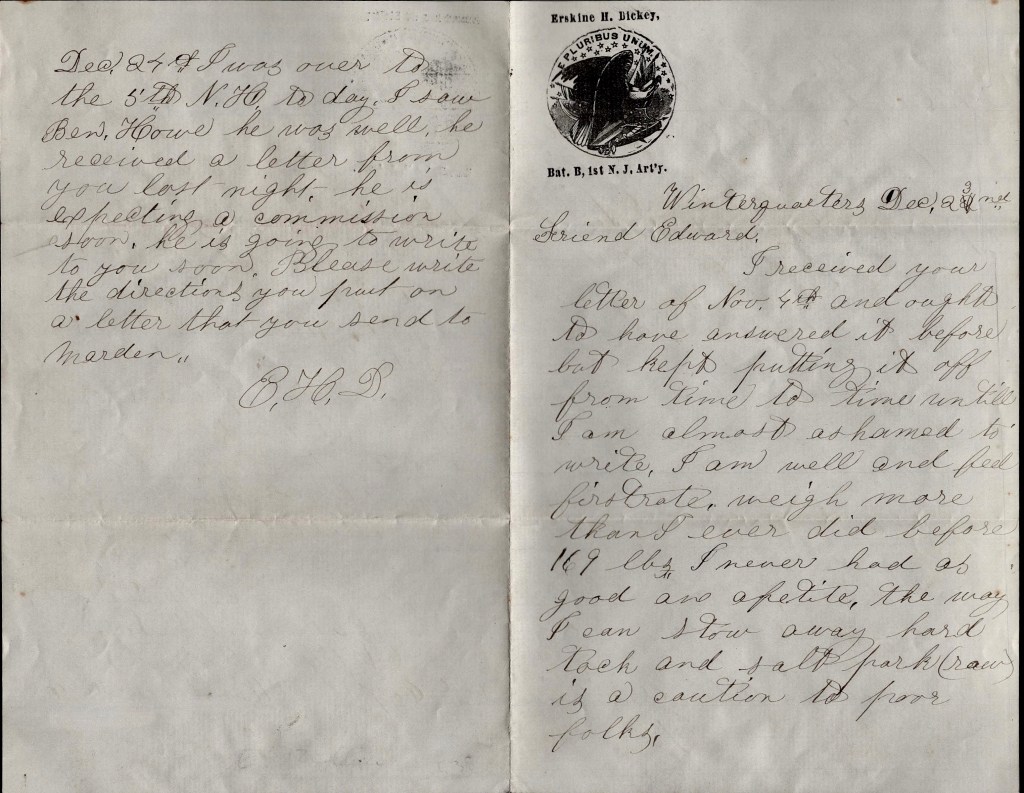 Dec. 24th I was over to
the 5th N.H. to day. I saw
Ben. Howe he was well, he
received a letter from
you last night, he is
expecting a commission
soon. he is going to write
to you soon. Please write
the directions you put on
a letter that you send to
Marden.,
E. H. D.
Erskine H. Dickey,
E PLURIBUS UNUM
Bat. B, 1st N. J. Art'y.
Winterquarters Dec. 23
Friend Edward.
I received your
letter of Nov. 4th and ought
to have answered it before
but kept putting it off
from time to time untill
I am almost ashamed to
write. I am well and feel
firstrate. weigh more
than I ever did before
169 lbs I never had as
good an apetite. the way
I can stow away hard
tack and salt pork (raw)
is a caution to poor
folks.